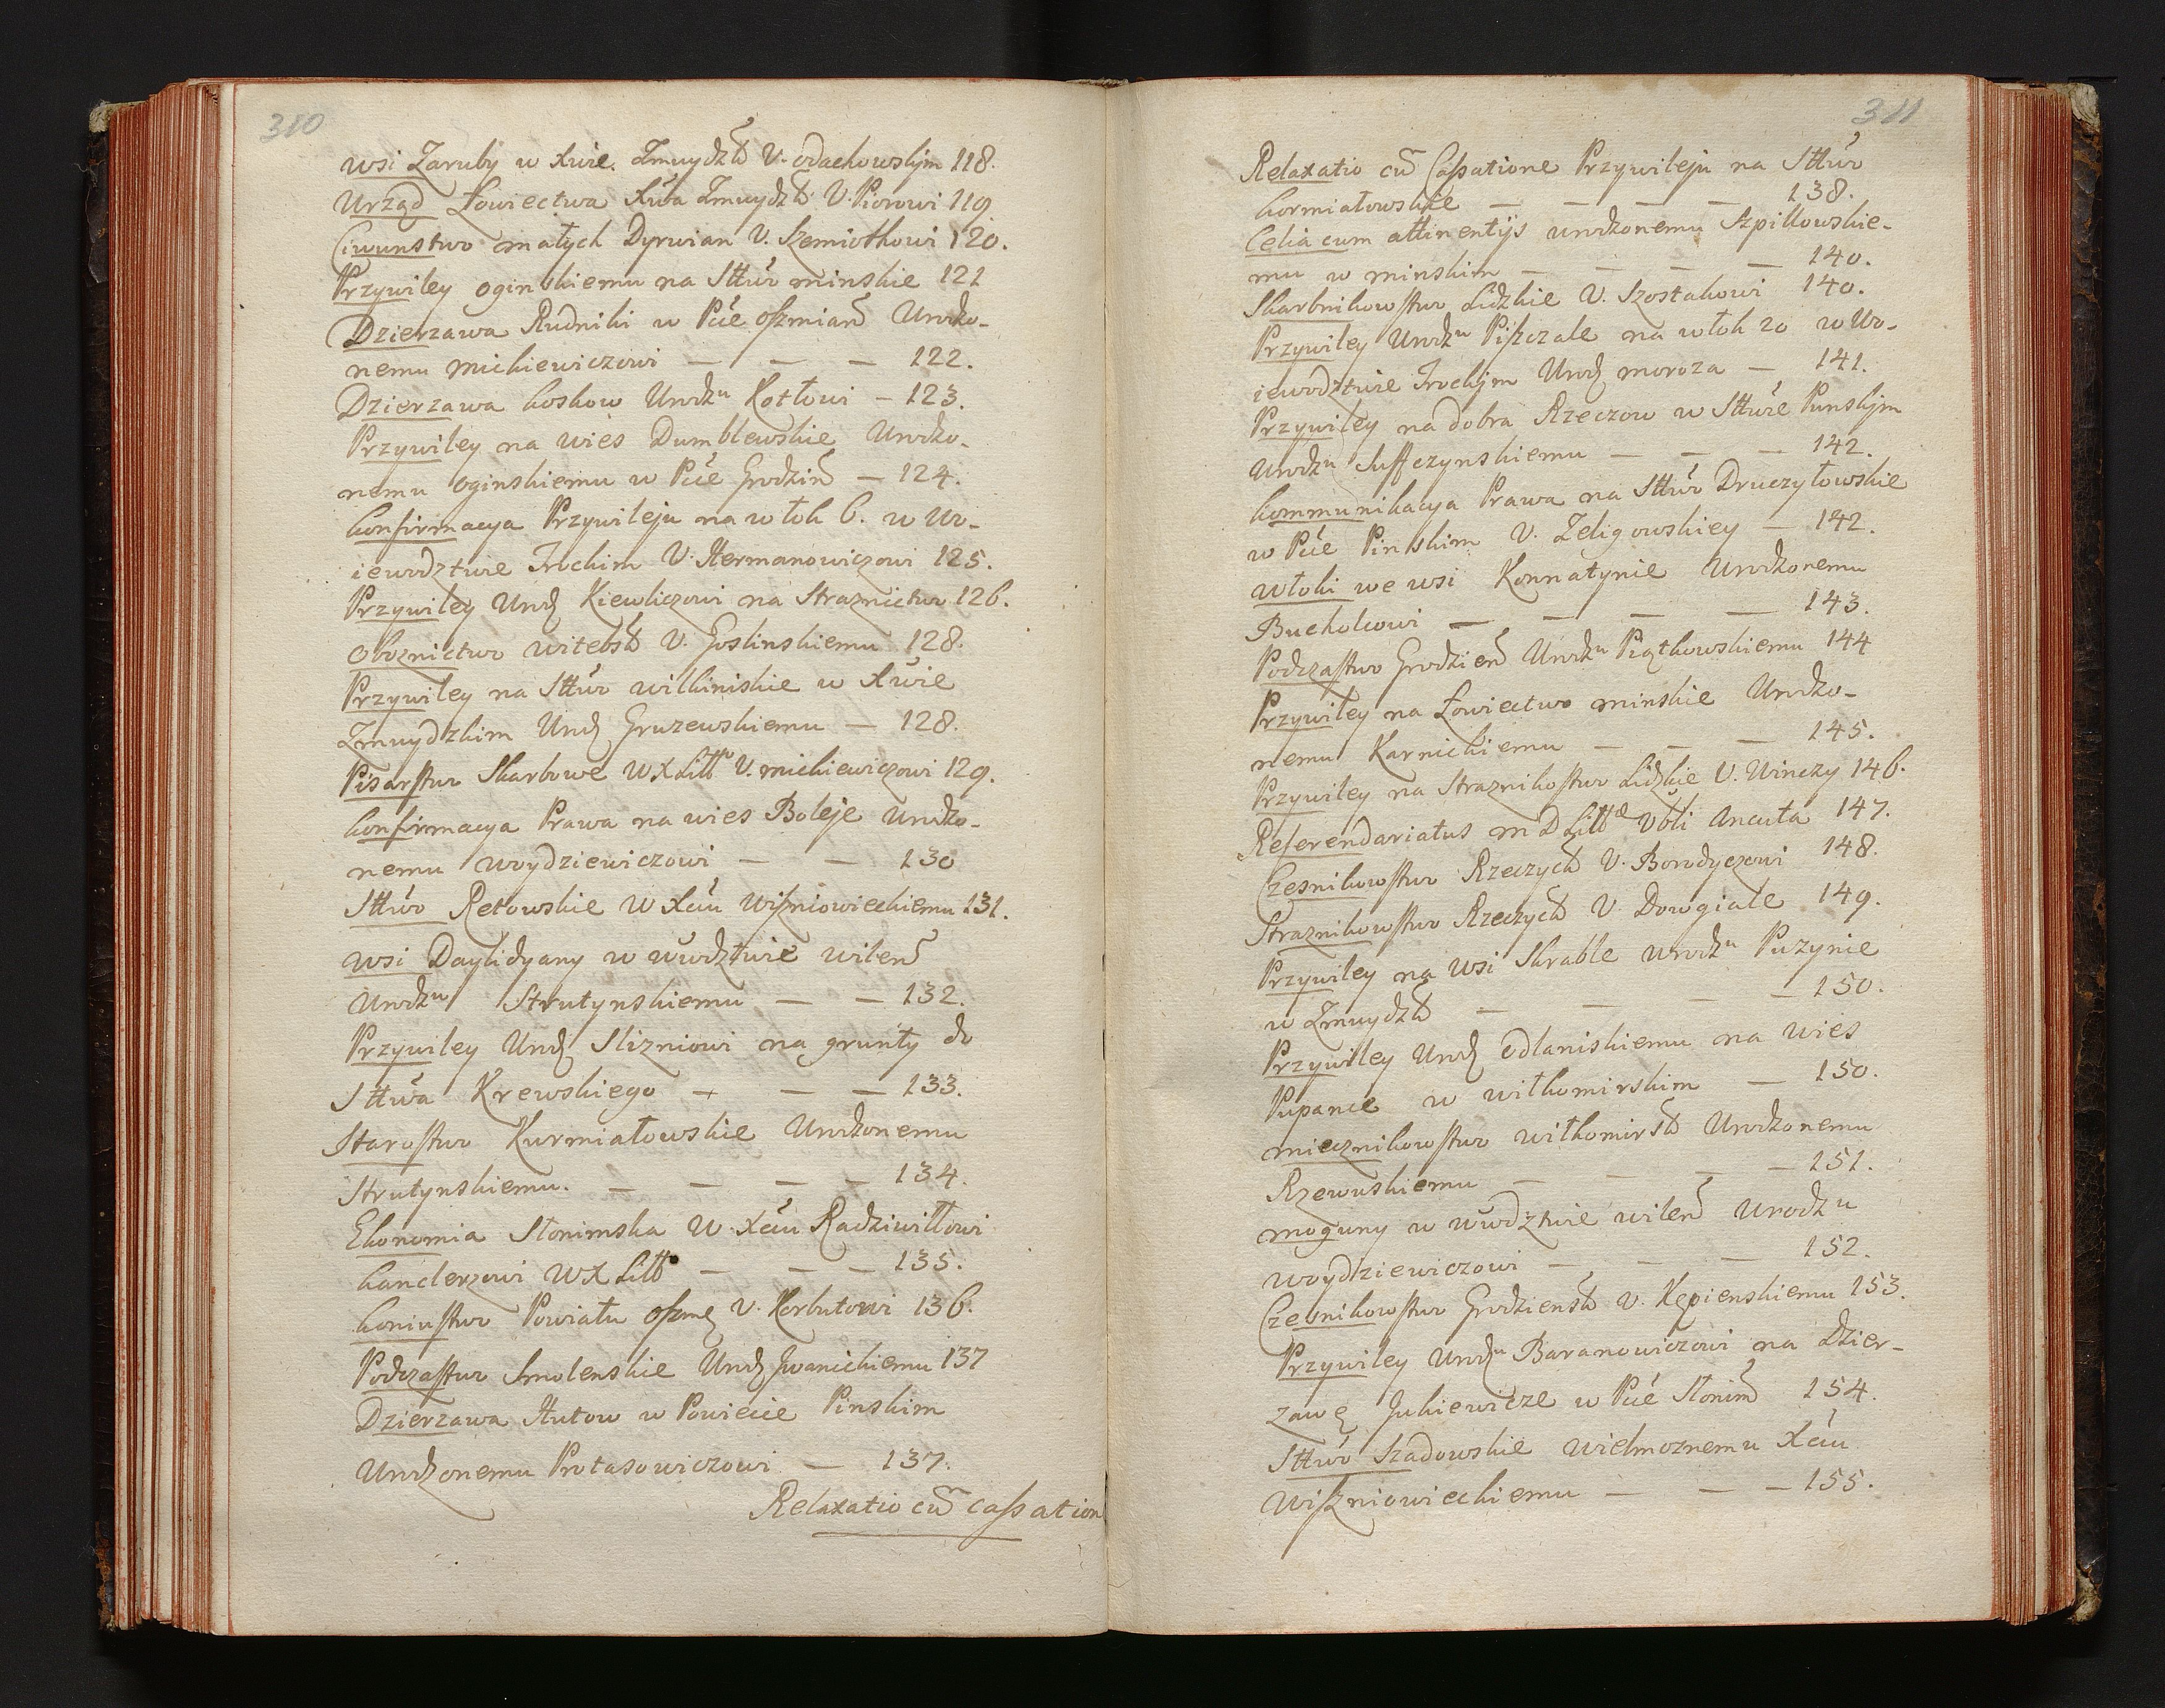 310
wsi Zaruby w Xwie. Zmuydzk V. Odachowskjm 118.
Urząd Łowiectwa Xwa Zmuydzk V. Piorowi 119
Ciwunstwo małych Dyrwian V. Szemiothowi 120.
Przywiley oginskiemu na Sttwo minskie 121
Dzierzawa Rudniki w Pcie oszmian Urodzo-
nemu Mickiewiczowi — — — 122.
Dzierzawa koskow Urodzu Kotłowi — 123.
Przywiley na wies Dumblewskie Urodzo-
nemu Oginskiemu w Pcie Grodzin — 124.
konfirmacya Przywileju na włok 6. w Wo-
iewodztwie Trockim V. Hermanowiczowi 125.
Przywiley Urodz Kiewliczowi na Straznictwo 126.
oboznictwo witebsk V. Goslinskiemu 128.
Przywiley na Sttwo wilkiniskie w Xwie
Zmuydzkim Urodz Gruzewskiemu — 128.
Pisarstwo Skarbowe W X Litt V. mickiewiczowi 129.
konfirmacya Prawa na wies Boleje Urodzo-
nemu woydziewiczowi — — 130
Sttwo Retowskie W Xciu Wiszniowieckiemu 131.
wsi Daylidyany w wwodztwie wilen
Urodzu Strutynskiemu — — 132.
Przywiley Urodz Slizniowi na grunty do
Sttwa Krewskiego — — — 133.
Starostwo Kurmiałowskie Urodzonemu
Strutynskiemu. — — — — 134.
Ekonomia Słonimska W. Xciu Radziwiłłowi
kanclerzowi W X Litt — — — 135.
koniustwo Powiatu oszm V. Korbutowi 136.
Podczastwo Smolenskie Urodz Jwanickiemu 137
Dzierzawa Hutow w Powiecie Pinskim
Urodzonemu Protasowiczowi — 137.
Relaxatio cu cassation
311
Relaxatio cu Cassatione Przywileju na Sttwo
kormiałowskie — — — — 138.
Celia cum attinentijs urodzonemu Szpilkowskie-
mu w minskim — — — — 140.
Skarbnikowstwo Lidzkie V. Szostakowi 140.
Przywiley Urodzu Piszczale na włok 20 w Wo-
iewodztwie Trockjm Urodz moroza — 141.
Przywiley na dobra Rzeczow w Sttwie Punskjm
Urodzu Suffczynskiemu — — — 142.
kommunikacya Prawa na Sttwo Druczyłowskie
w Pcie Pinskim V. Zeligowskiey — 142.
włoki we wsi Konnatynie Urodzonemu
Bucholcowi — — — — 143.
Podczastwo Grodzien Urodzu Piątkowskiemu 144
Przywiley na Łowiectwo minskie Urodzo-
nemu Karnickiemu — — — 145.
Przywiley na Straznikostwo Lidzkie V. Winczy 146.
Referendariatus m D Litt Vbli Ancuta 147.
Czesnikowstwo Rzeczyck V. Borodyczowi 148.
Straznikowstwo Rzeczyck V. Dowgiale 149.
Przywiley na wsi Skrable urodzu Puzynie
w Zmuydzk — — — — 150.
Przywiley Urodz Odlaniskiemu na wies
Pupance w wiłkomirskim — 150.
miecznikowstwo wiłkomirsk Urodzonemu
Rzewuskiemu — — — — 151.
moguny w wwodztwie wilen urodzu
woydziewiczowi — — — 152.
Czesnikowstwo Grodziensk V. Kępienskiemu 153.
Przywiley Urodzu Baranowiczowi na Dzier-
zawę Jukiewicze w Pcie Słonim 154.
Sttwo Szadowskie wielmoznemu Xciu
Wiszniowieckiemu — — — 155.